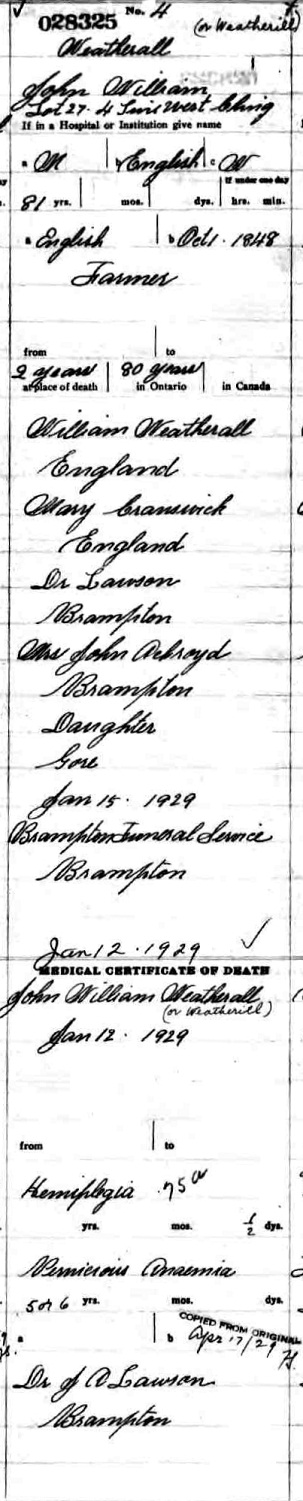 028325 No. 4 (or Weatherill)
Weatherall
John William
Lot 27. 4 Line West Ching
If in a Hospital or Institution give name
a M b English c W
If under one day
81 yrs. mos. dys. hrs. min.
a English b Oct 1. 1848
Farmer
from to
2 years 80 years
at place of death in Ontario in Canada
William Weatherall
England
Mary Cranswick
England
Dr Lawson
Brampton
Mrs John Ackroyd
Brampton
Daughter
Gore
Jan 15. 1929
Brampton Funeral Service
Brampton
Jan 12. 1929
MEDICAL CERTIFICATE OF DEATH
John William Weatherall
(or Weatherill)
Jan 12. 1929
from to
Hemiplegia 75a
yrs. mos. 1/2 dys.
Pernicious Anaemia
5 or 6 yrs. mos. dys.
COPIED FROM ORIGINAL
a b Apr 17/29
Dr J A Lawson
Brampton